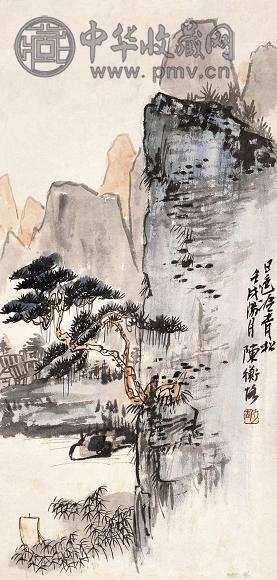 中华收藏网
www.pmv.cn
青松
壬戌陽月 陳衡恪